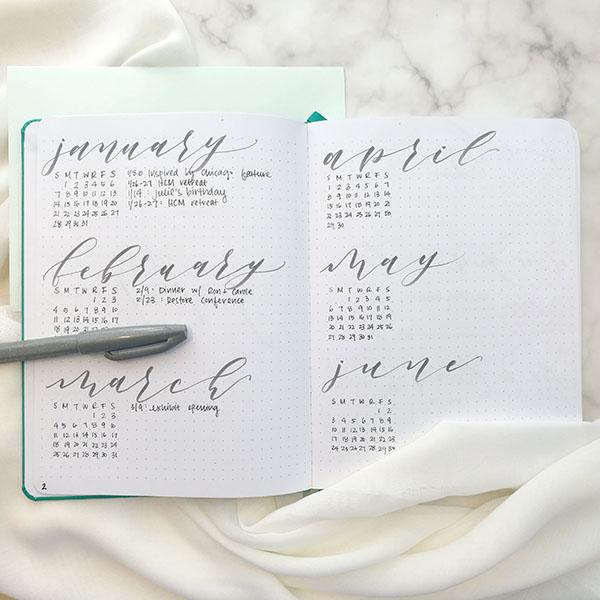 january
S M T W R F S 1/30 Inspired by Chicago feature
1 2 3 4 5 6 1/26-27 HCM retreat
7 8 9 10 11 12 13 1/14 : Julie's birthday
14 15 16 17 18 19 20 1/26-27 : HCM retreat
21 22 23 24 25 26 27
28 29 30 31
february
S M T W R F S 2/9 : Dinner w/ Ron + Carole
1 2 3 2/23 : Restore Conference
4 5 6 7 8 9 10
11 12 13 14 15 16 17
18
march
S M T W R F S 3/9 : exhibit opening
1 2 3
4 5 6 7 8 9 10
11 12 13 14 15 16 17
18 19 20 21 22 23 24
25 26 27 28 29 30 31
2
april
S M T W R F S
1 2 3 4 5 6 7
8 9 10 11 12 13 14
15 16 17 18 19 20 21
22 23 24 25 26 27 28
29 30
may
S M T W R F S
1 2 3 4 5
6 7 8 9 10 11 12
13 14 15 16 17 18 19
20 21 22 23 24 25 26
27 28 29 30 31
june
S M T W R F S
1 2
3 4 5 6 7 8 9
10 11 12 13 14 15 16
17 18 19 20 21 22 23
24 25 26 27 28 29 30